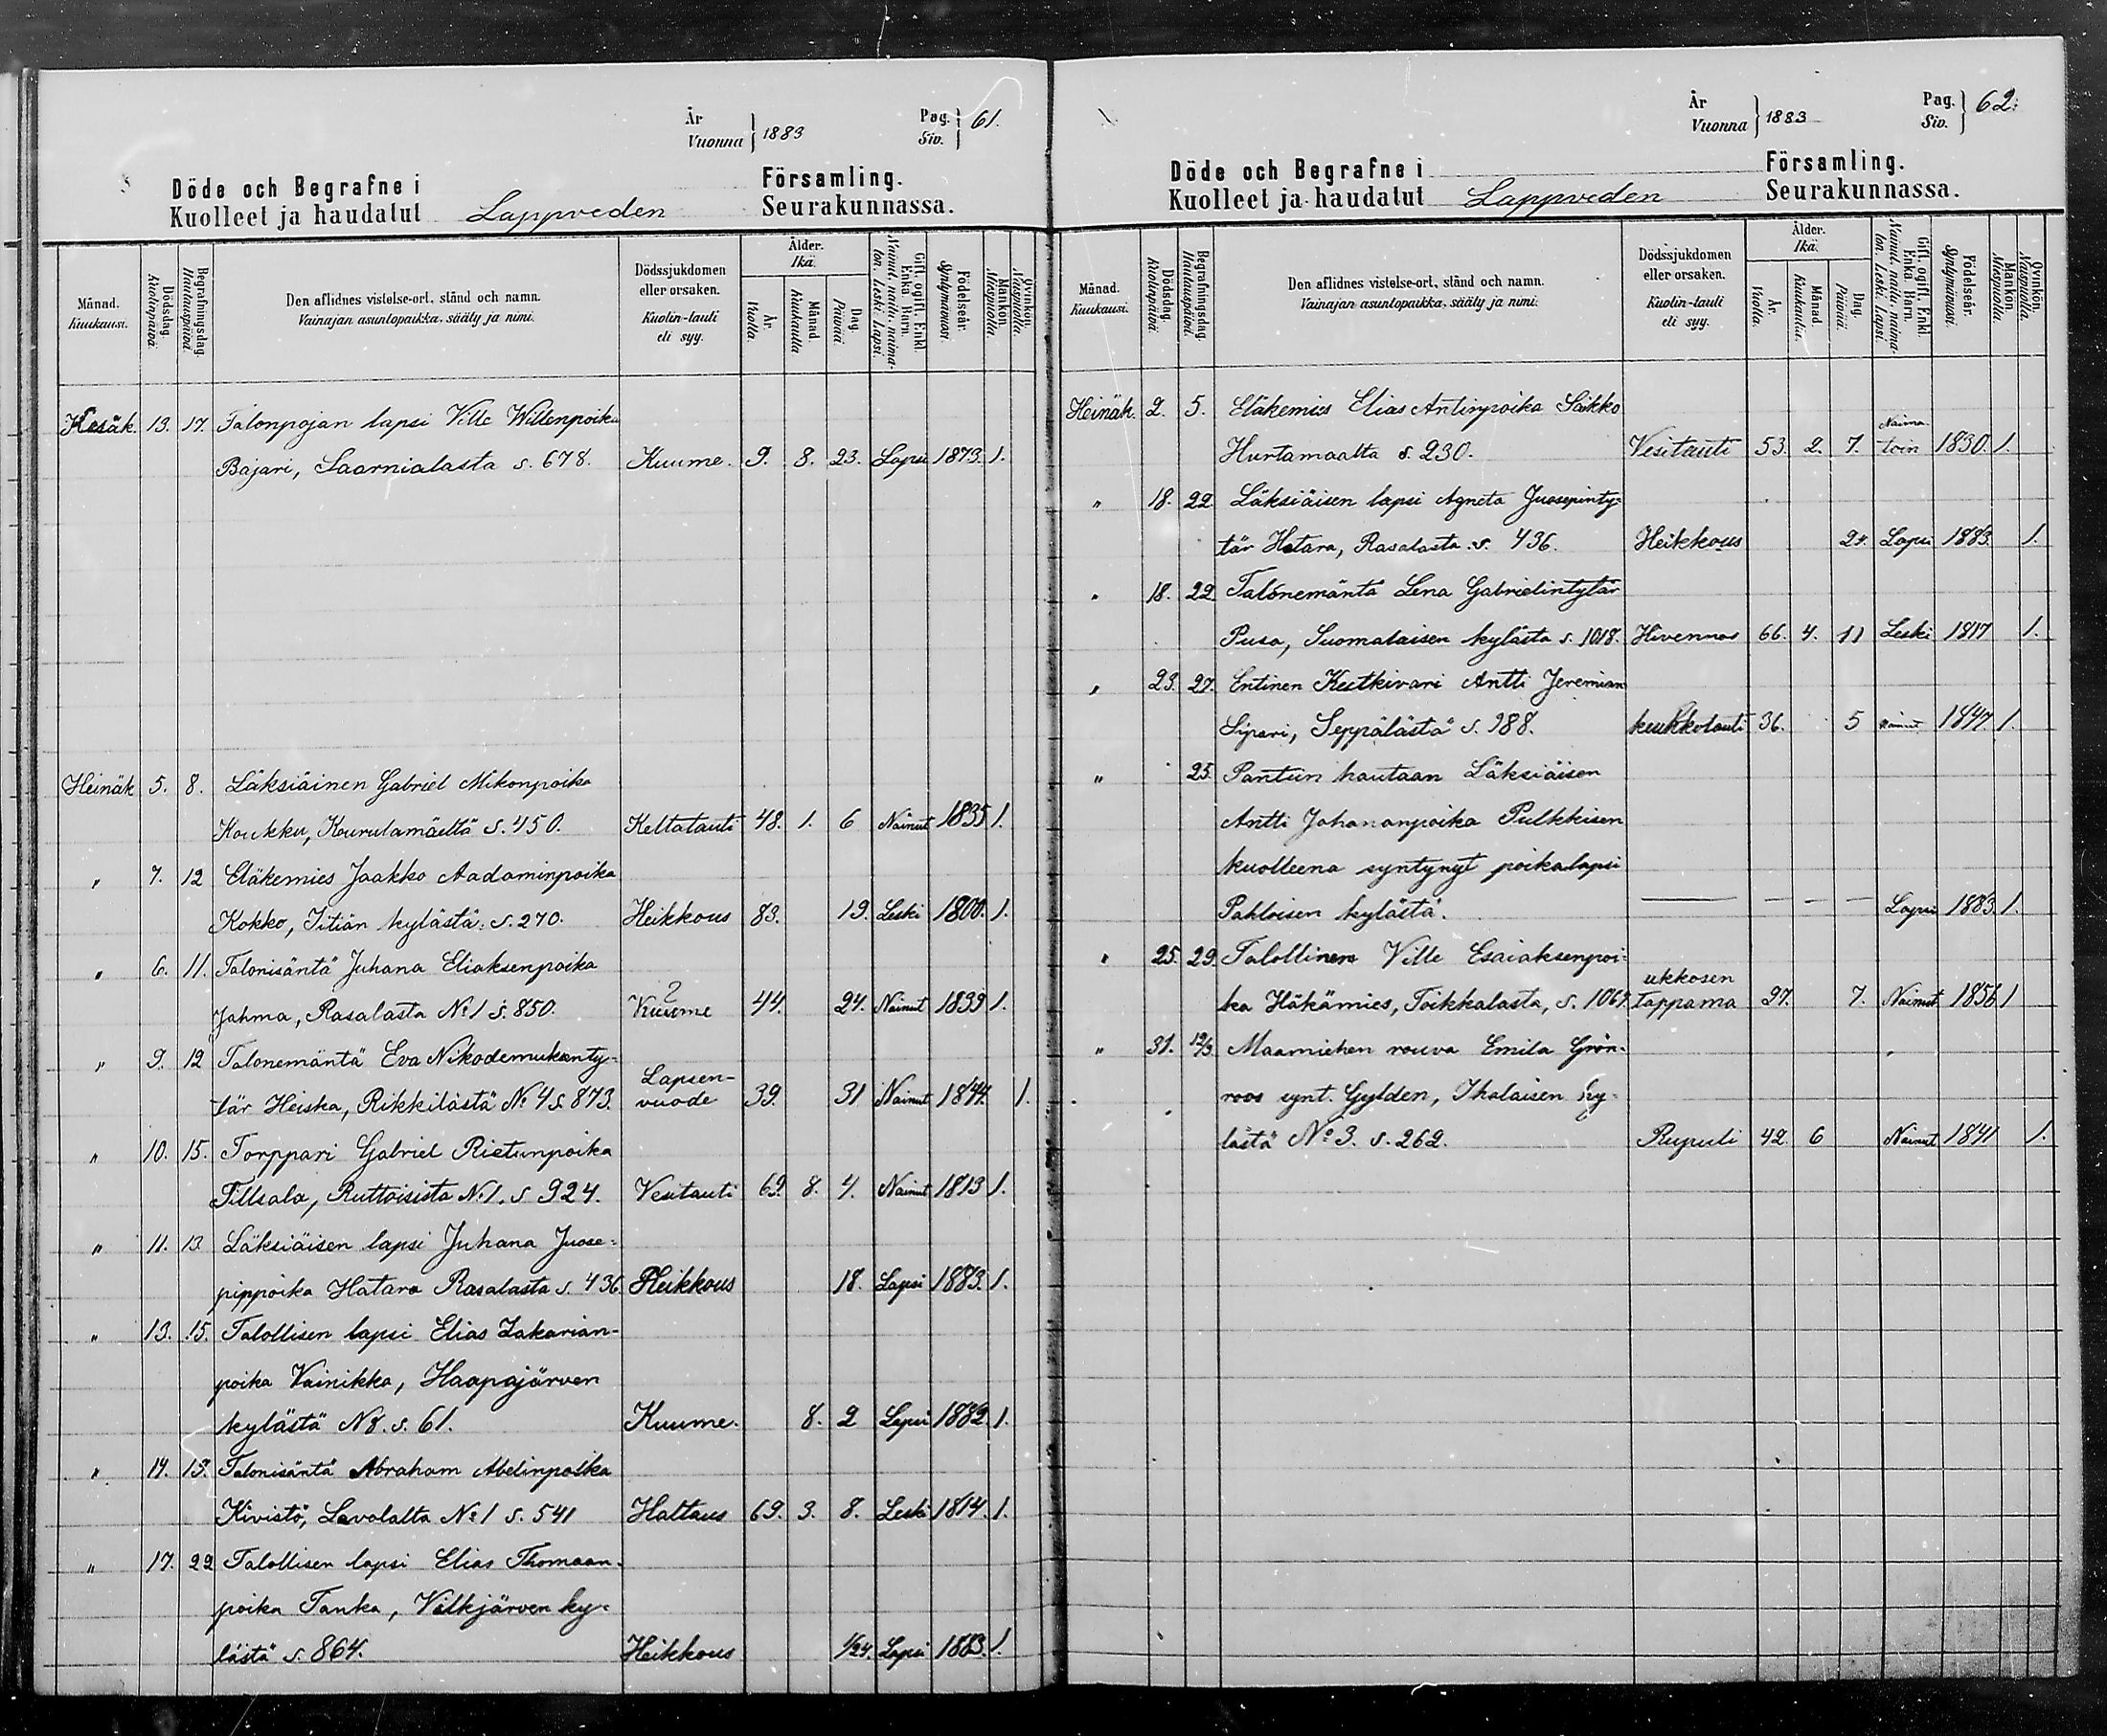 År
Vuonna } 1883
Pag.
Siv. } 61.
Döde och Begrafne i Församling.
Kuolleet ja haudatut Lappveden Seurakunnassa.
Månad. Kuukausi.
Dödsdag. Kuolinpäivä.
Begrafningsdag. Hautauspäivä.
Den aflidnes vistelse-ort, stånd och namn.
Vainajan asuntopaikka, sääty ja nimi.
Dödssjukdomen eller orsaken.
Kuolin-tauti eli syy.
Ålder. Ikä.
År. Vuotta.
Månad. Kuukautta.
Dag. Päivää.
Gift, ogift, Enkl. Enka, Barn.
Nainut, naitu, naima-ton. Leski. Lapsi.
Födelseår. Syntymävuosi.
Mankön. Miespuolia.
Qvinkön. Naispuolia.
Kesäk. 13. 17. Talonpojan lapsi Ville Willenpoika
Bajari, Saarnialasta s. 678. Kuume. 9. 8. 23. Lapsi 1873. 1.
Heinäk 5. 8. Läksiäinen Gabriel Mikonpoika
Koukku, Kourulamäeltä s. 450. Keltatauti 48. 1. 6 Nainut 1835 1.
" 7. 12 Eläkemies Jaakko Aadaminpoika
Kokko, Iitiän kylästä s. 270. Heikkous 83. 19. Leski 1800. 1.
" 6. 11. Talonisäntä Juhana Eliaksenpoika
Jahma, Rasalasta No 1 s. 850. Kuume ? 44. 24. Nainut 1839 1.
" 9. 12 Talonemäntä Eva Nikodemuksenty-
tär Heiska, Rikkilästä No 4 s. 873. Lapsen-
vuode 39. 31 Nainut 1844. 1.
" 10. 15. Torppari Gabriel Rietunpoika
Tillsala, Ruttoisista No 1. s 924. Vesitauti 69. 8. 4. Nainut 1813 1.
" 11. 13 Läksiäisen lapsi Juhana Juose-
pippoika Hatara Rasalasta s. 436 Heikkous 18. Lapsi 1883. 1.
" 13. 15. Talollisen lapsi Elias Zakarian-
poika Vainikka, Haapajärven
kylästä N8. s. 61. Kuume. 8. 2 Lapsi 1882. 1.
" 14. 15. Talonisäntä Abraham Abelinpoika
Kivistö, Lavolalta No 1 s. 541 Haltaus 69. 3. 8. Leski 1814. 1.
" 17. 22 Talollisen lapsi Elias Thomaan-
poika Tanka, Vilkjärven ky-
lästä s. 864. Heikkous 1/24. Lapsi 1883. 1.
År
Vuonna } 1883
Pag.
Siv. } 62.
Döde och Begrafne i Församling.
Kuolleet ja haudatut Lappveden Seurakunnassa.
Månad. Kuukausi.
Dödsdag. Kuolinpäivä.
Begrafningsdag. Hautauspäivä.
Den aflidnes vistelse-ort, stånd och namn.
Vainajan asuntopaikka, sääty ja nimi.
Dödssjukdomen eller orsaken.
Kuolin-tauti eli syy.
Ålder. Ikä.
År. Vuotta.
Månad. Kuukautta.
Dag. Päivää.
Gift, ogift, Enkl. Enka, Barn.
Nainut, naitu, naima-ton. Leski. Lapsi.
Födelseår. Syntymävuosi.
Mankön. Miespuolia.
Qvinkön. Naispuolia.
Heinäk. 2. 5. Eläkemies Elias Antinpoika Saikko
Hurtamaalta s. 230. Vesitauti 53. 2. 7. Naima-
toin 1830. 1.
" 18. 22 Läksiäisen lapsi Agneta Juosepinty-
tär Hatara, Rasalasta s. 436. Heikkous 24. Lapsi 1883. 1.
" 18. 22 Talonemäntä Lena Gabrielintytär
Pusa, Suomalaisen kylästä s. 1018. Hivennos 66. 4. 11 Leski 1817 1.
" 23. 27. Entinen Kestkivari Antti Jeremian
Sipari, Seppälästä s. 988. keuhkotauti 36. 5 Nainut 1847. 1.
" 25. Pantiin hautaan Läksiäisen
Antti Johananpoika Pulkkisen
kuolleena syntynyt poikalapsi
Pahloisen kylästä. — — — — Lapsi 1883. 1.
" 25. 29. Talollinen Ville Esaiaksenpoi-
ka Häkämies, Toikkalasta, s. 1067. ukkosen
tappama 27. 7. Nainut 1856 1
" 31. 12/9 Maamiehen rouva Emila Grön-
roos synt. Gylden, Ihalaisen ky-
lästä No 3. s. 262. Rupuli 42. 6 Nainut 1841 1.